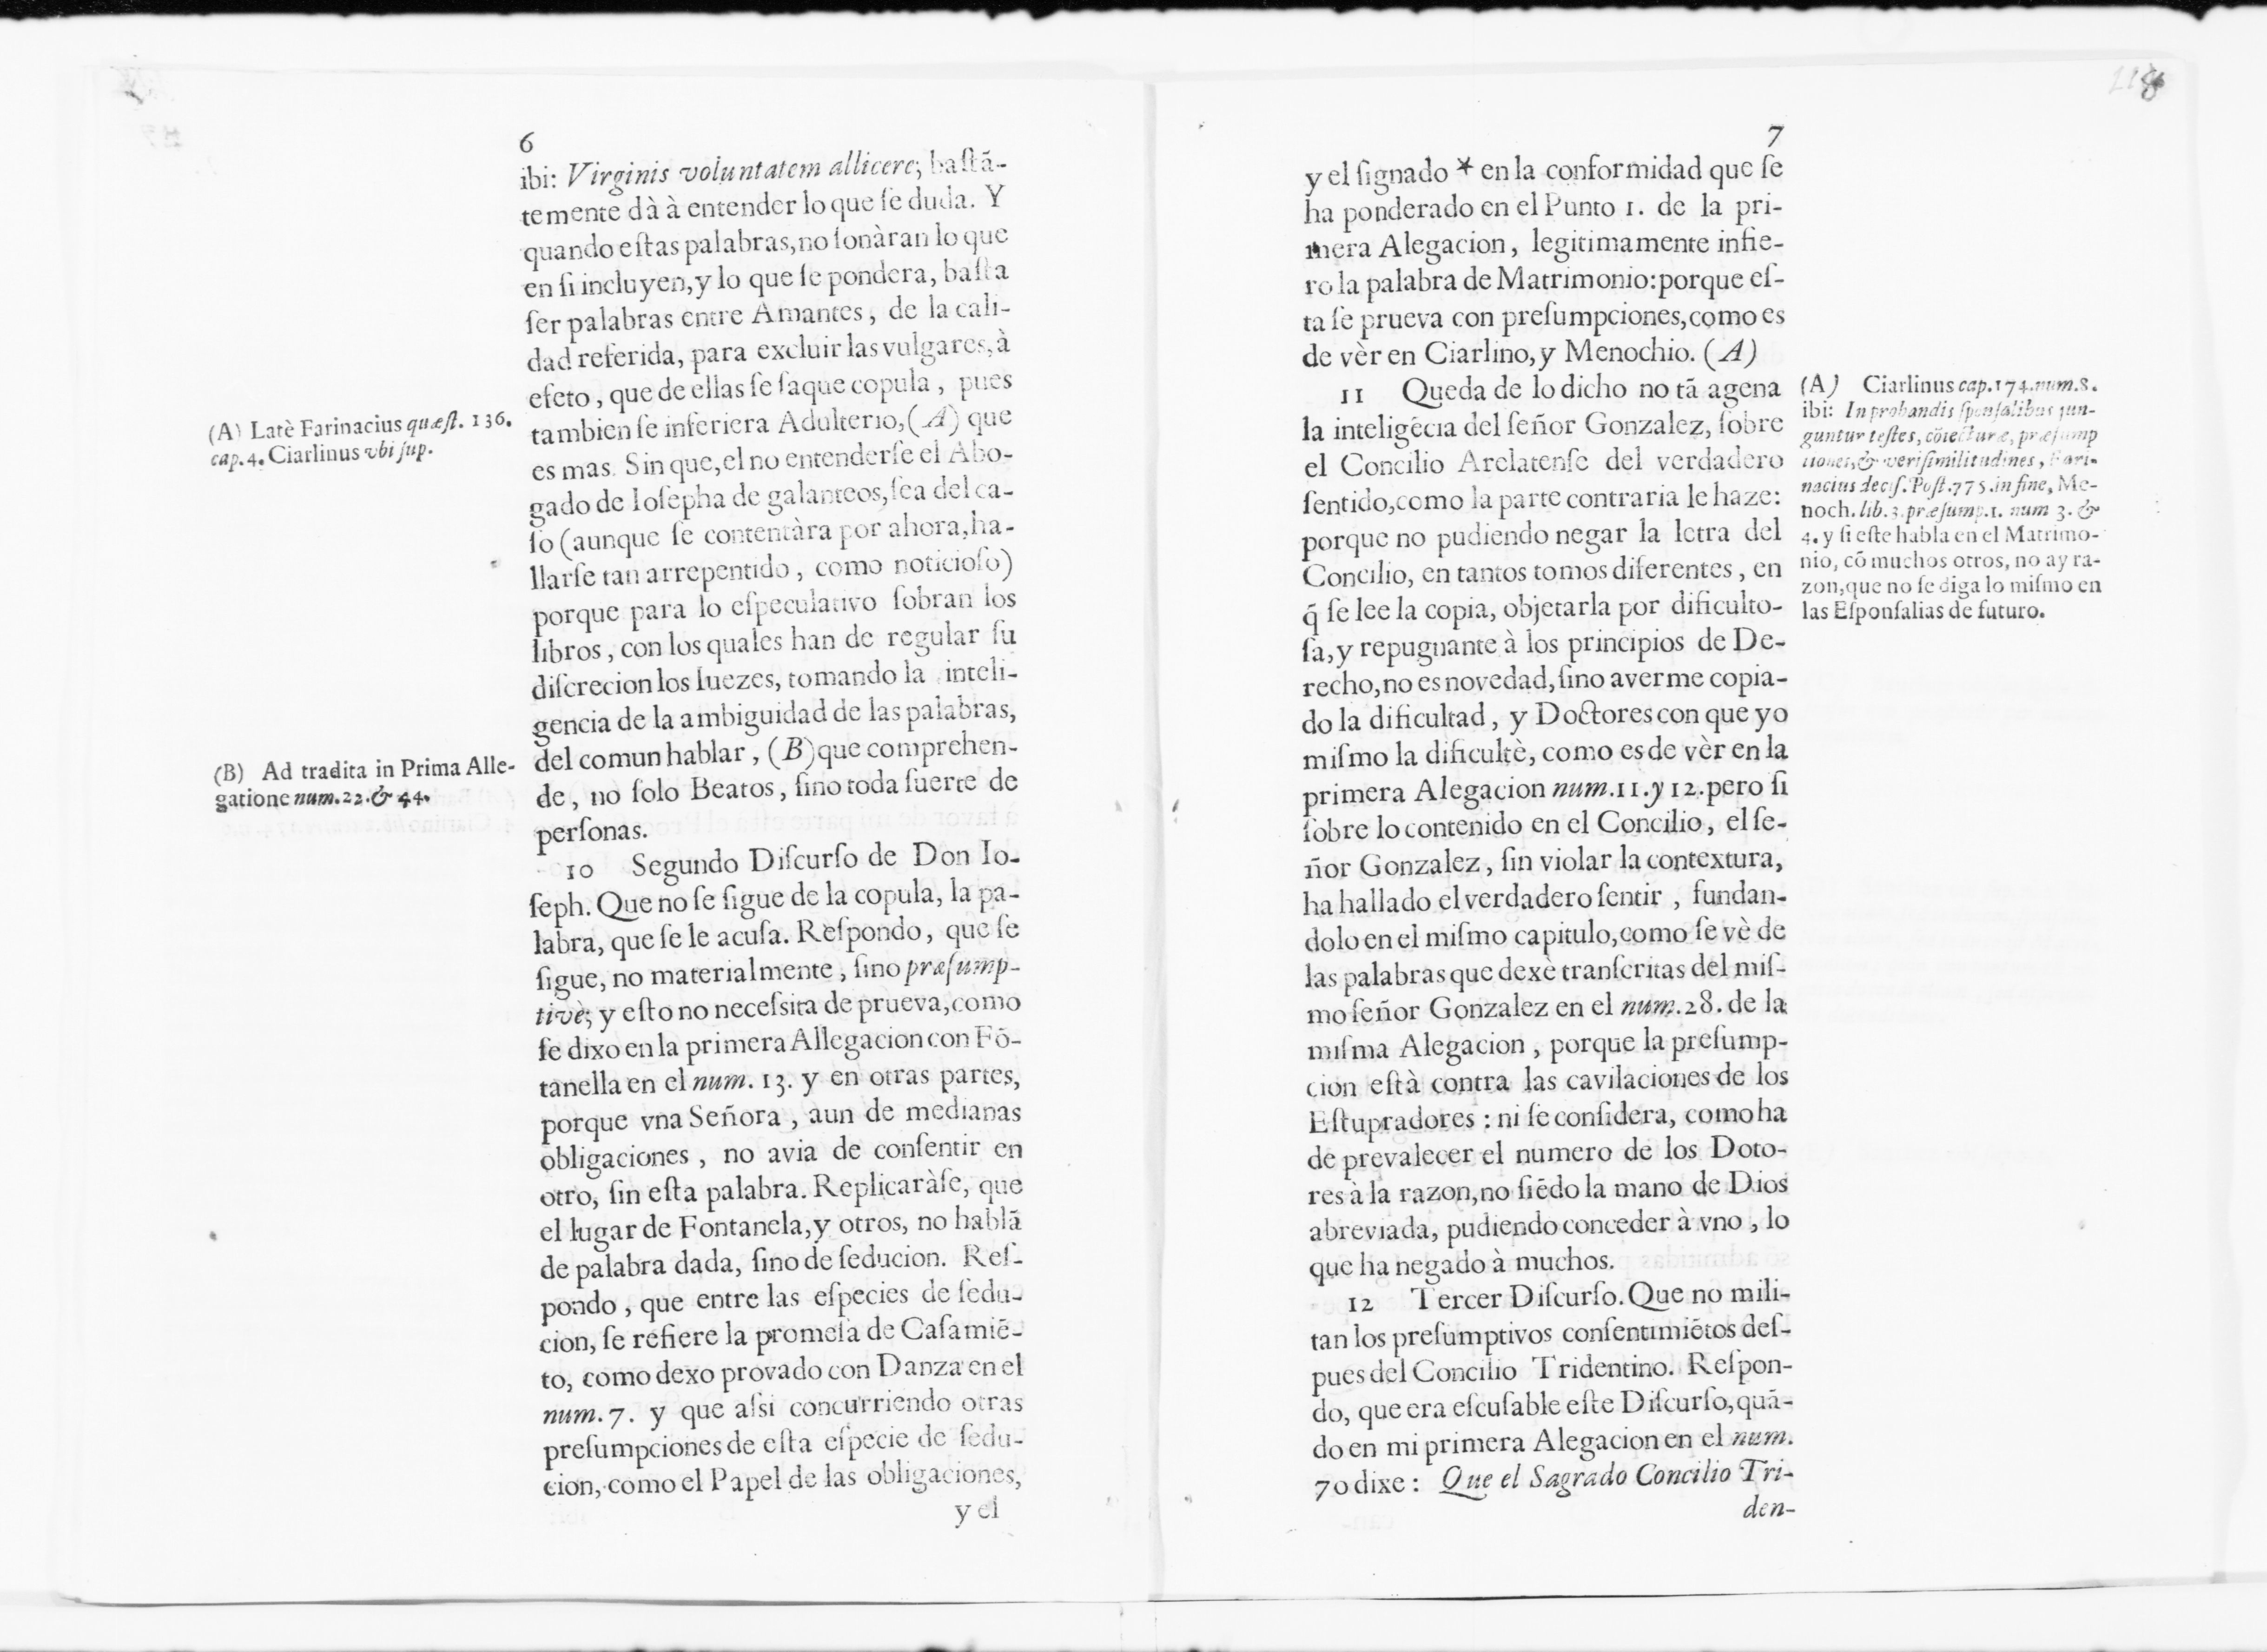 6
ibi: Virginis voluntatem allicere; baſtã-
temente dà à entender lo que ſe duda. Y
quando eſtas palabras, no ſonàran lo que
en ſi incluyen, y lo que ſe pondera, baſta
ſer palabras entre Amantes, de la cali-
dad referida, para excluir las vulgares, à
efeto, que de ellas ſe ſaque copula, pues
tambien ſe inferiera Adulterio, (A) que
es mas. Sin que, el no entenderſe el Abo-
gado de Ioſepha de galanteos, ſea del ca-
ſo (aunque ſe contentàra por ahora, ha-
llarſe tan arrepentido, como noticioſo)
porque para lo eſpeculativo ſobran los
libros, con los quales han de regular ſu
diſcrecion los Iuezes, tomando la inteli-
gencia de la ambiguidad de las palabras,
del comun hablar, (B) que comprehen-
de, no ſolo Beatos, ſino toda ſuerte de
perſonas.
10 Segundo Diſcurſo de Don Io-
ſeph. Que no ſe ſigue de la copula, la pa-
labra, que ſe le acuſa. Reſpondo, que ſe
ſigue, no materialmente, ſino præſump-
tivè; y eſto no neceſsita de prueva, como
ſe dixo en la primera Allegacion con Fõ-
tanella en el num. 13. y en otras partes,
porque vna Señora, aun de medianas
obligaciones, no avia de conſentir en
otro, ſin eſta palabra. Replicaràſe, que
el lugar de Fontanela, y otros, no hablã
de palabra dada, ſino de ſeducion. Reſ-
pondo, que entre las eſpecies de ſedu-
cion, ſe refiere la promeſa de Caſamiẽ-
to, como dexo provado con Danza en el
num. 7. y que aſsi concurriendo otras
preſumpciones de eſta eſpecie de ſedu-
cion, como el Papel de las obligaciones,
y el
(A) Latè Farinacius quæſt. 136.
cap. 4. Ciarlinus vbi ſup.
(B) Ad tradita in Prima Alle-
gatione num. 22. & 44.
7
y el ſignado * en la conformidad que ſe
ha ponderado en el Punto 1. de la pri-
mera Alegacion, legitimamente infie-
ro la palabra de Matrimonio: porque eſ-
ta ſe prueva con preſumpciones, como es
de vèr en Ciarlino, y Menochio. (A)
11 Queda de lo dicho no tã agena
la inteligẽcia del ſeñor Gonzalez, ſobre
el Concilio Arelatenſe del verdadero
ſentido, como la parte contraria le haze:
porque no pudiendo negar la letra del
Concilio, en tantos tomos diferentes, en
q̃ ſe lee la copia, objetarla por dificulto-
ſa, y repugnante à los principios de De-
recho, no es novedad, ſino averme copia-
do la dificultad, y Doctores con que yo
miſmo la dificultè, como es de vèr en la
primera Alegacion num. 11. y 12. pero ſi
ſobre lo contenido en el Concilio, el ſe-
ñor Gonzalez, ſin violar la contextura,
ha hallado el verdadero ſentir, fundan-
dolo en el miſmo capitulo, como ſe vè de
las palabras que dexè tranſcritas del miſ-
mo ſeñor Gonzalez en el num. 28. de la
miſma Alegacion, porque la preſump-
cion eſtà contra las cavilaciones de los
Eſtupradores: ni ſe conſidera, como ha
de prevalecer el numero de los Doto-
res à la razon, no ſiẽdo la mano de Dios
abreviada, pudiendo conceder à vno, lo
que ha negado à muchos.
12 Tercer Diſcurſo. Que no mili-
tan los preſumptivos conſentimiẽtos deſ-
pues del Concilio Tridentino. Reſpon-
do, que era eſcuſable eſte Diſcurſo, quã-
do en mi primera Alegacion en el num.
70 dixe: Que el Sagrado Concilio Tri-
den-
(A) Ciarlinus cap. 174. num. 8.
ibi: In probandis ſponſalibus iun-
guntur teſtes, cõiecturæ, præſump
tiones, & veriſimilitudines, Fari-
nacius deciſ. Poſt. 775. in fine, Me-
noch. lib. 3. præſump. 1. num 3. &
4. y ſi eſte habla en el Matrimo-
nio, cõ muchos otros, no ay ra-
zon, que no ſe diga lo miſmo en
las Eſponſalias de futuro.